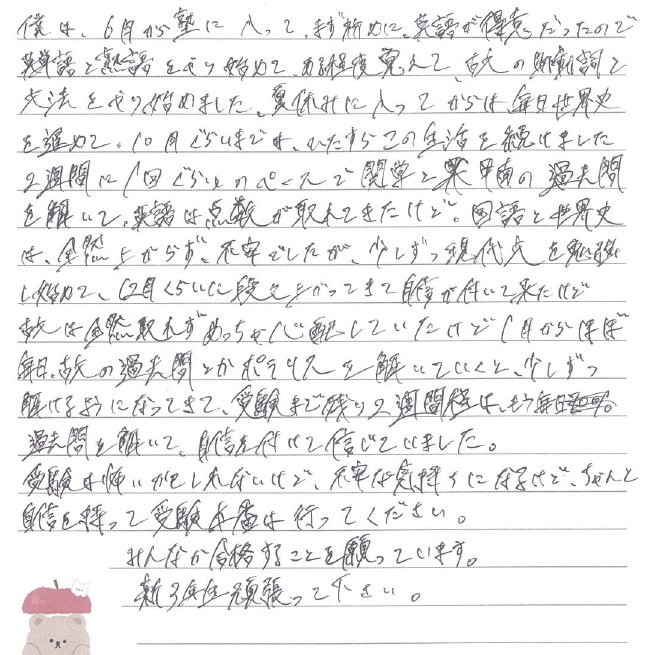 僕は、6月から塾に入って、まず初めに、英語が得意だったので
英単語と熟語をやり始めて、ある程度覚えて、古文の助動詞と
文法をやり始めました。夏休みに入ってからは毎日世界史
を進めて、10月ぐらいまでは、ひたすらこの生活を続けました
2週間に1回ぐらいのペースで関学と甲南の過去問
を解いて、英語は点数が取れてきたけど、国語と世界史
は、全然上がらず、不安でしたが、少しずつ現代文を勉強
し始めて、12月くらいに段々上がってきて自信が付いて来たけど
古文は全然取れずめっちゃ心配していたけど1月からほぼ
毎日、古文の過去問とかポラリスを解いていくと、少しずつ
解けるようになってきて、受験まで残り2週間程は、もう毎日
過去問を解いて、自信を付けて信じていました。
受験は怖いかもしれないけど、不安な気持ちになるけど、ちゃんと
自信を持って受験本番は行ってください。
みんなが合格することを願っています。
新3年生頑張って下さい。